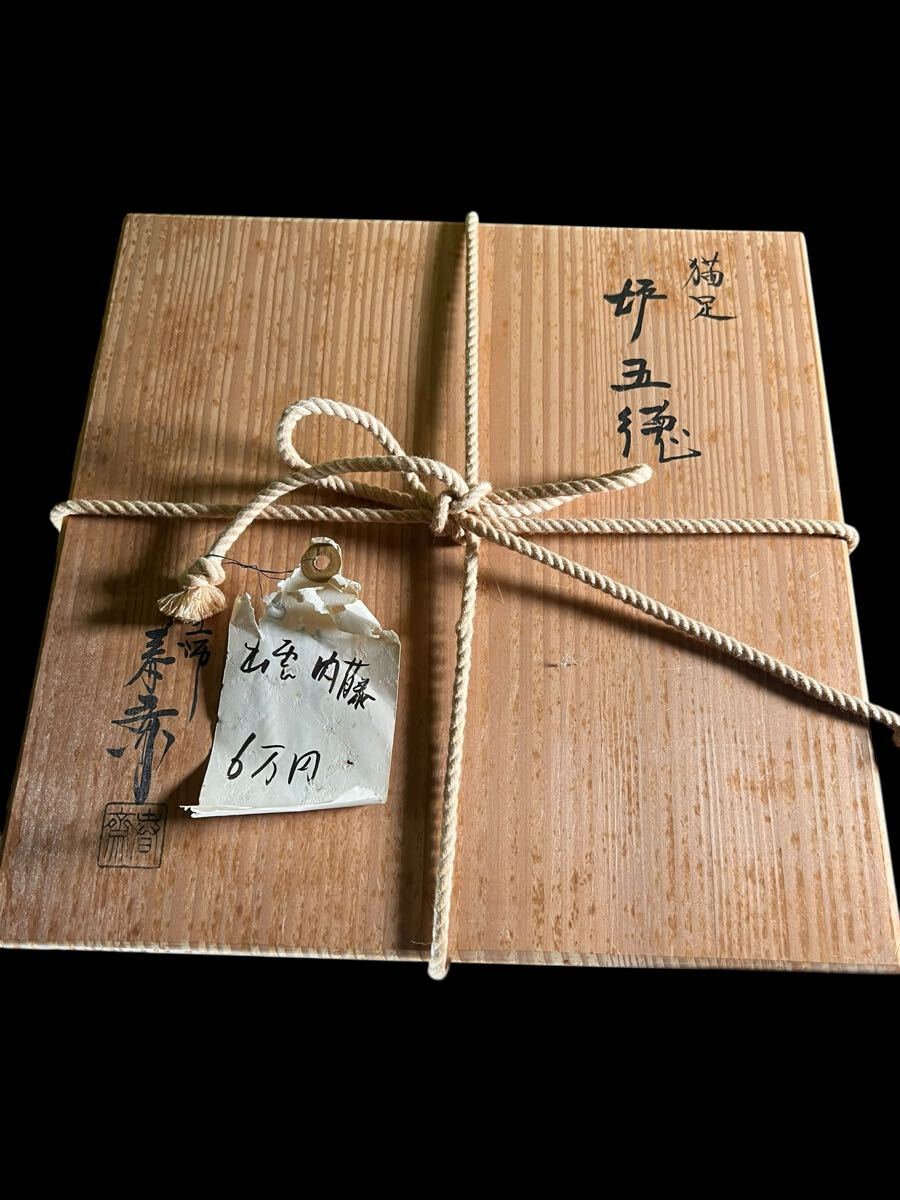 猫足
炉五徳
師
春斎
出雲内藤
6万円